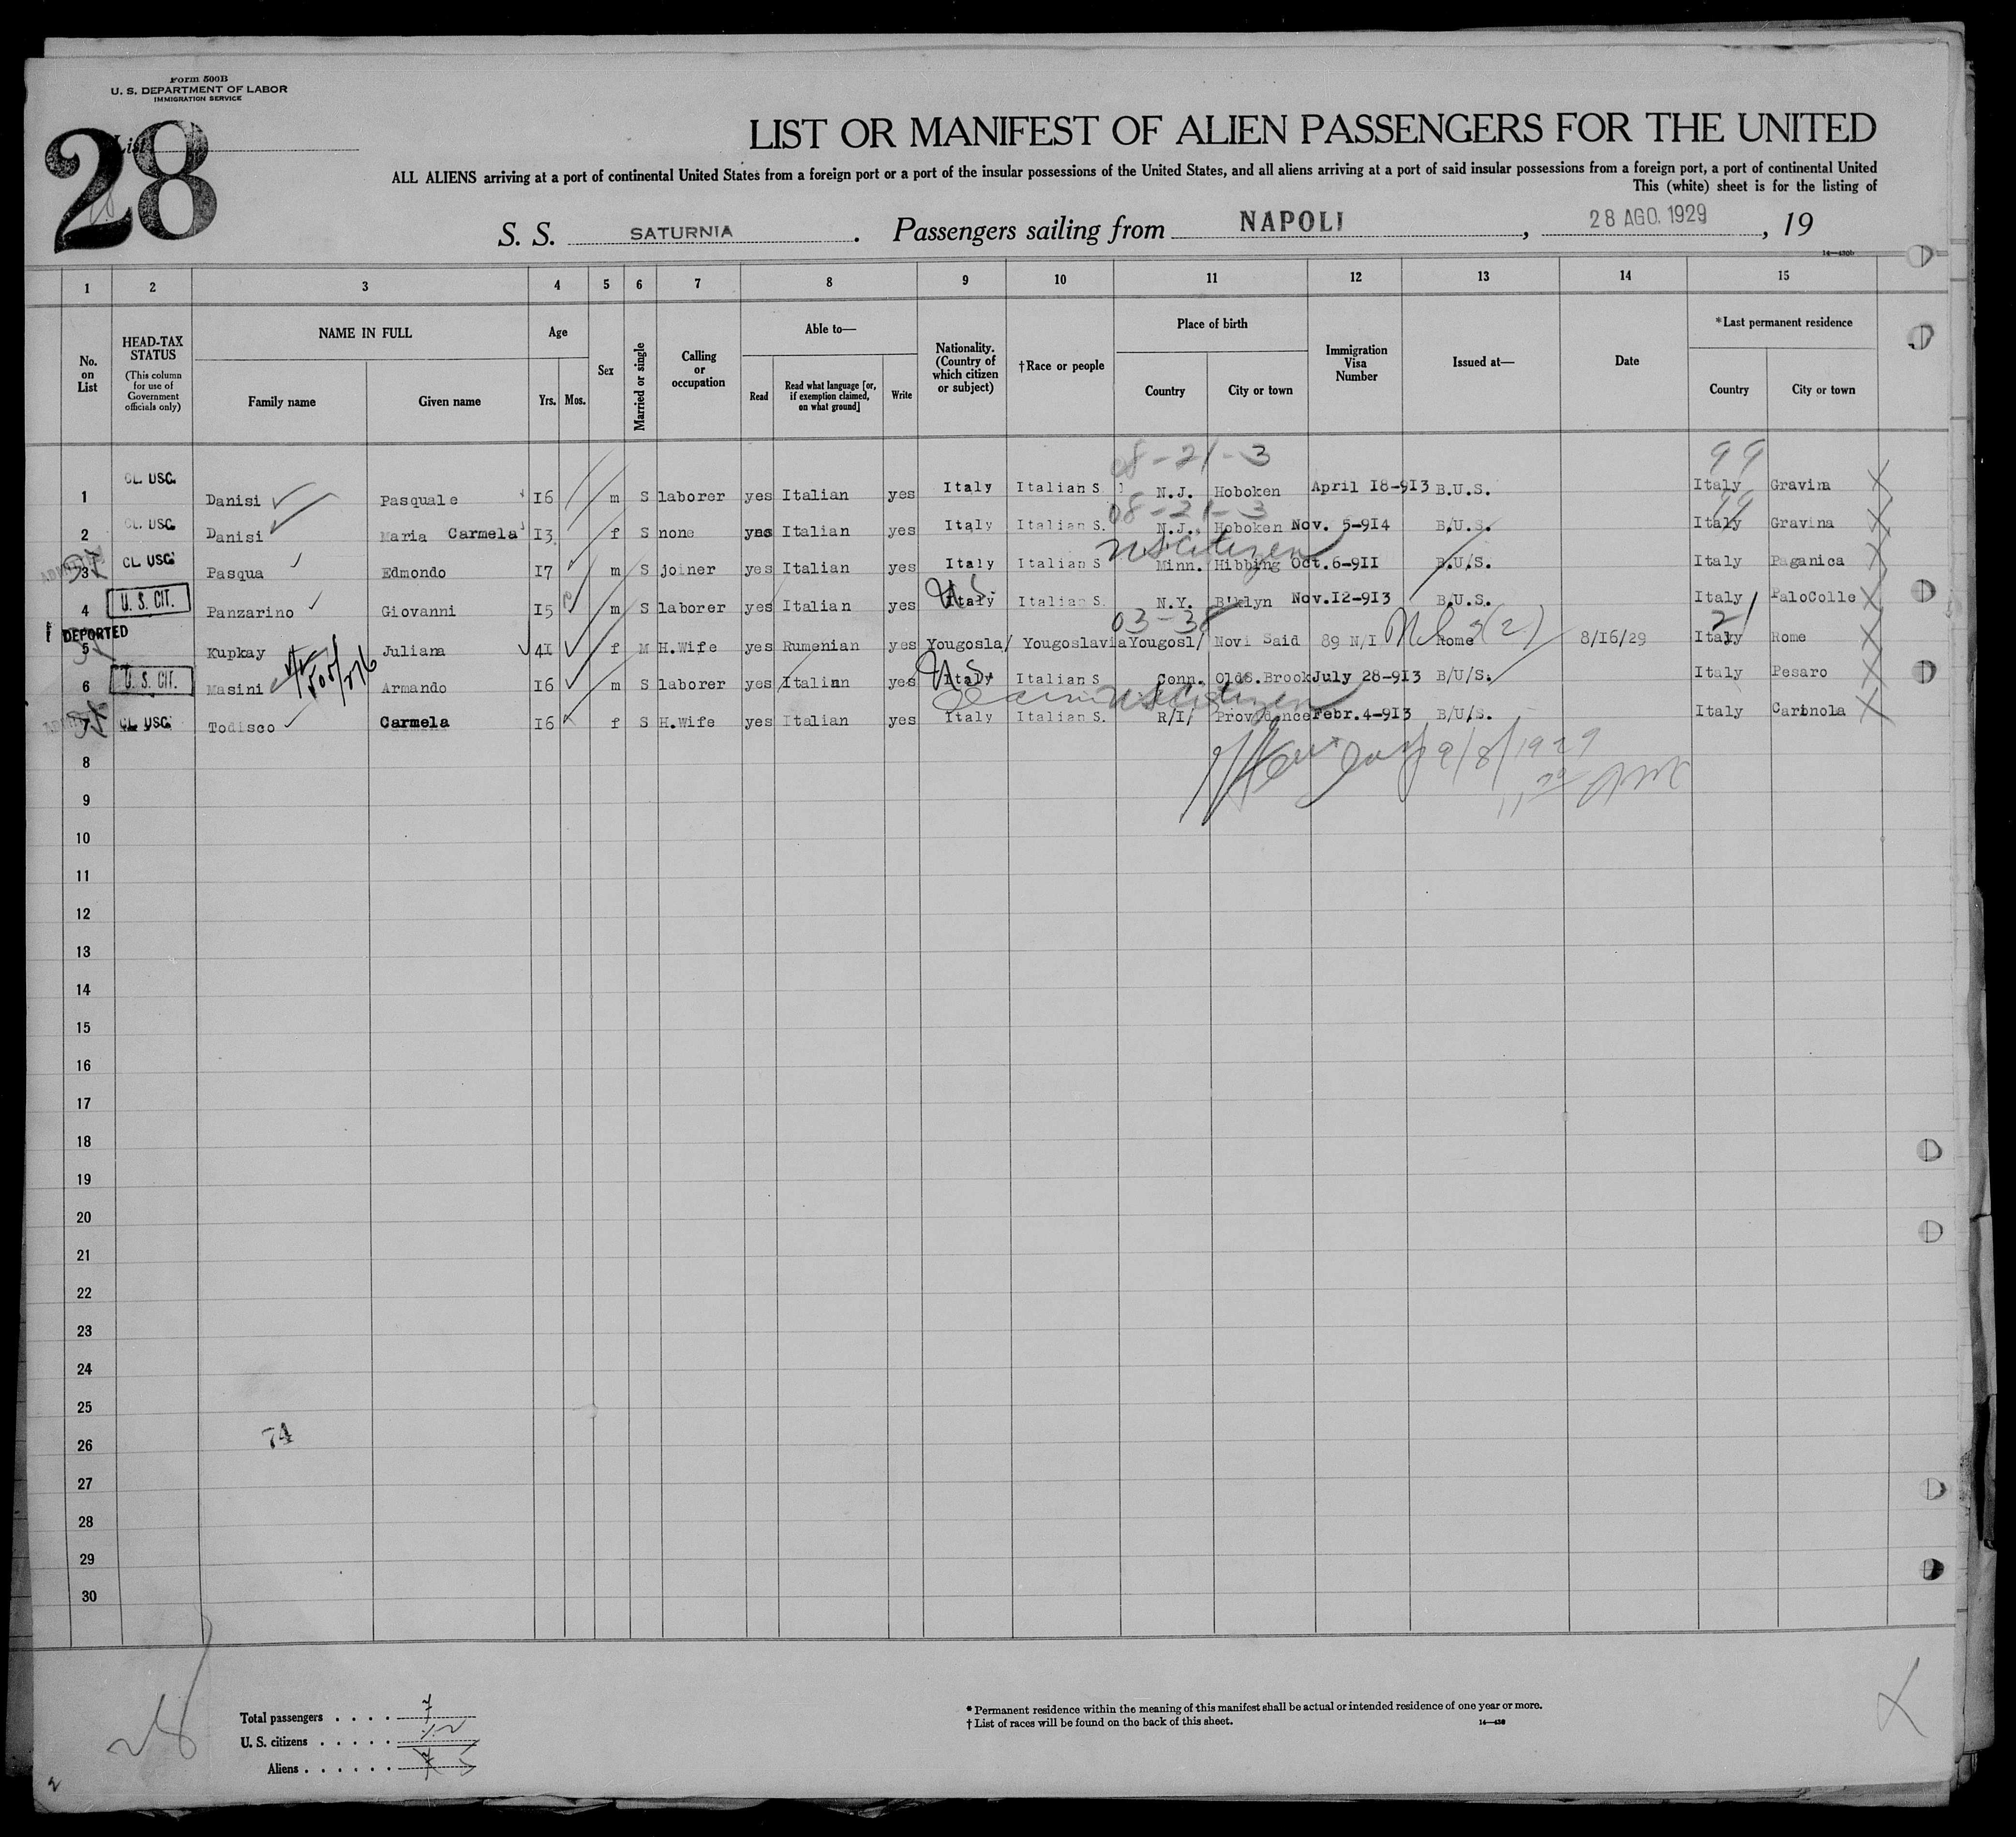 Form 500B
U. S. DEPARTMENT OF LABOR
IMMIGRATION SERVICE
List
28
LIST OR MANIFEST OF ALIEN PASSENGERS FOR THE UNITED
ALL ALIENS arriving at a port of continental United States from a foreign port or a port of the insular possessions of the United States, and all aliens arriving at a port of said insular possessions from a foreign port, a port of continental United
This (white) sheet is for the listing of
S. S. SATURNIA. Passengers sailing from NAPOLI, 28 AGO. 1929, 19
14—430b
1 2 3 4 5 6 7 8 9 10 11 12 13 14 15
No. on List
HEAD-TAX STATUS
(This column for use of Government officials only)
NAME IN FULL
Family name Given name
Age
Yrs. Mos.
Sex
Married or single
Calling or occupation
Able to—
Read Read what language [or, if exemption claimed, on what ground] Write
Nationality. (Country of which citizen or subject)
†Race or people
Place of birth
Country City or town
Immigration Visa Number
Issued at—
Date
*Last permanent residence
Country City or town
08-21-3 99
1 CL. USC. Danisi Pasquale 16 m S laborer yes Italian yes Italy Italian S N.J. Hoboken April 18-913 B.U.S. Italy Gravina
08-21-3 99
2 CL. USC. Danisi Maria Carmela 13 f S none yes Italian yes Italy Italian S. N.J. Hoboken Nov. 5-914 B.U.S. Italy Gravina
US Citizen
3 CL USC Pasqua Edmondo 17 m S joiner yes Italian yes Italy Italian S Minn. Hibbing Oct.6-911 B.U/S. Italy Paganica
U.S.
4 U. S. CIT. Panzarino Giovanni 15 m S laborer yes Italian yes Italy Italian S. N.Y. B'klyn Nov.12-913 B.U.S. Italy PaloColle
DEPORTED
03-38 21
5 Kupkay Juliana 41 f M H.Wife yes Rumenian yes Yougosla/ Yougoslavia Yougosl/ Novi Said 89 N/I Rome 8/16/29 Italy Rome
U.S.
6 U. S. CIT. Masini Armando 16 m S laborer yes Italian yes Italy Italian S Conn. OldS.Brook July 28-913 B/U/S. Italy Pesaro
US Citizen
7 CL USC Todisco Carmela 16 f S H.Wife yes Italian yes Italy Italian S. R/I/ Providence Febr.4-913 B/U/S. Italy Carinola
8
9/8/1929
9
10
11
12
13
14
15
16
17
18
19
20
21
22
23
24
25
26
74
27
28
29
30
28
Total passengers . . . . 7
U. S. citizens . . . . .
Aliens . . . . . .
* Permanent residence within the meaning of this manifest shall be actual or intended residence of one year or more.
† List of races will be found on the back of this sheet.
14—430